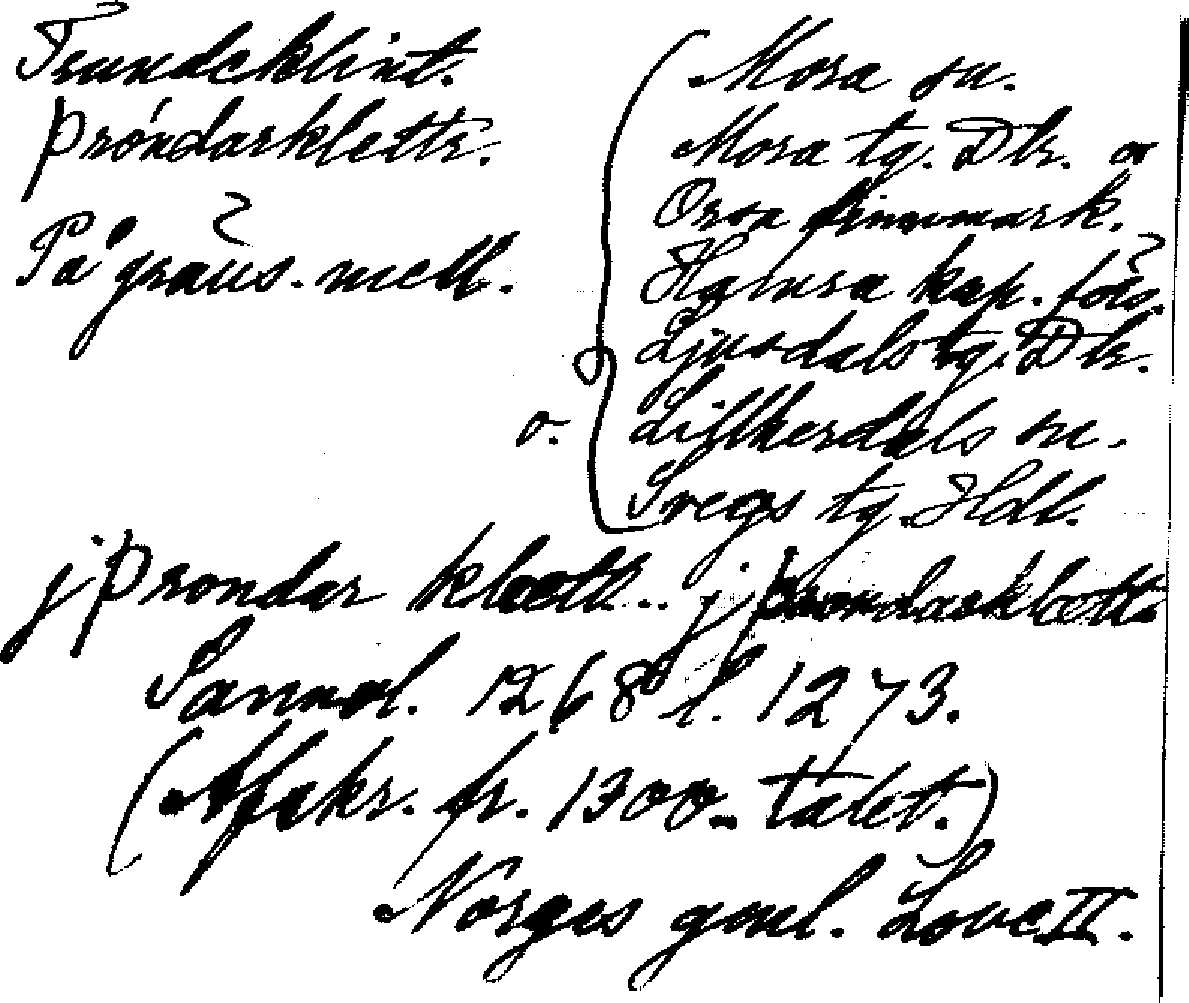 Trundeklint.
þróndarklettr.
?
På gräns. mell.
o.
Mora sn.
Mora tg. Dlr. o
Orsa finnmark.
Hglunsa kap. förs.
Ljusdals tg. Dlr.
Lillherdals sn.
Svegs tg. Hdl.
j þrondar klætt.. j þrondarklætt
Sannol. 1268 l. 1273.
(Afskr. fr. 1300-talet.)
Norges gml. Love II.